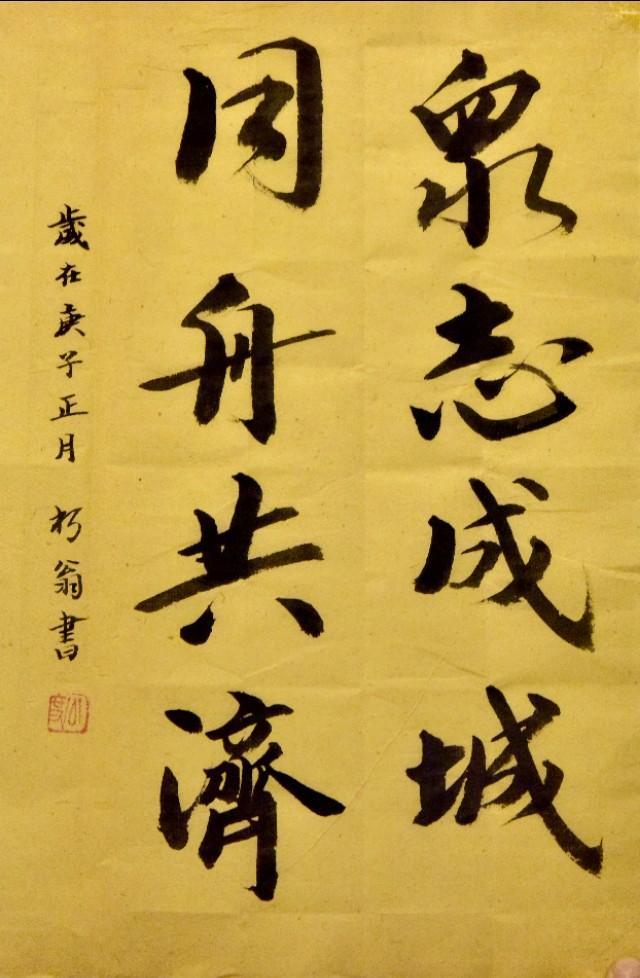 眾志成城
同舟共濟
歲在庚子正月 朽翁書